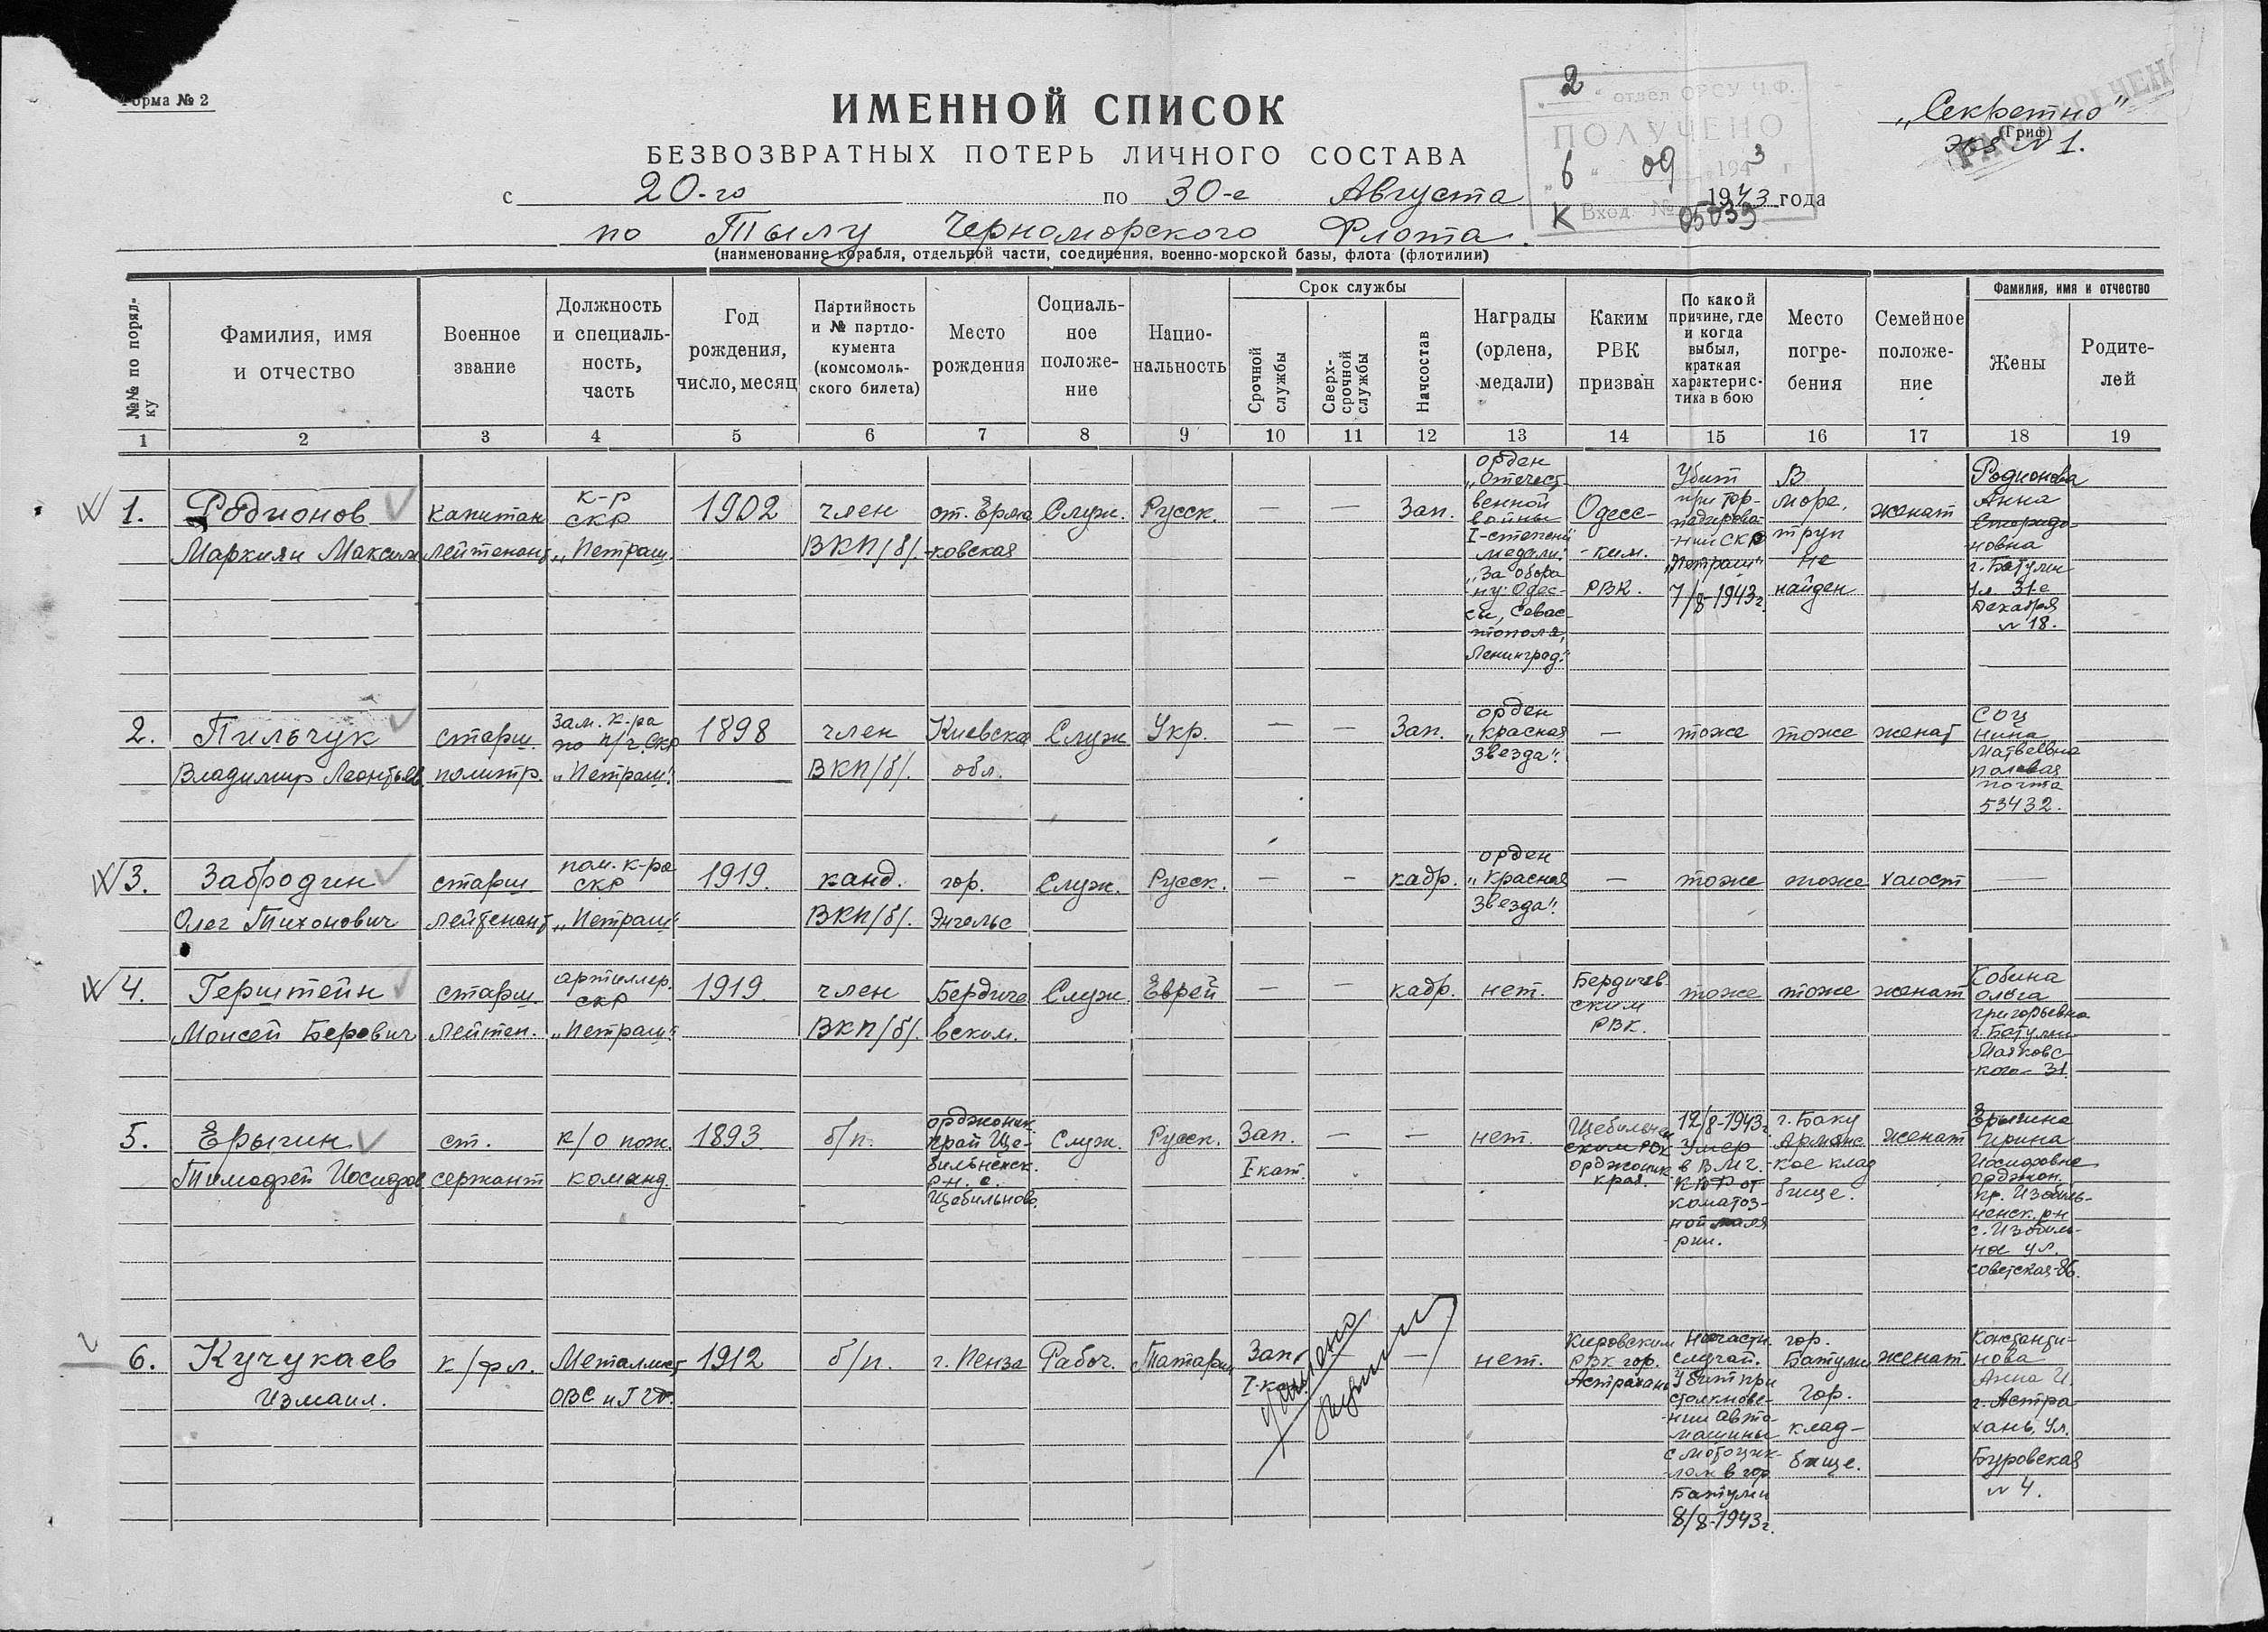 Форма № 2
ИМЕННОЙ СПИСОК
БЕЗВОЗВРАТНЫХ ПОТЕРЬ ЛИЧНОГО СОСТАВА
с 20-го по 30-е Августа 1943 года
по Тылу Черноморского Флота.
(наименование корабля, отдельной части, соединения, военно-морской базы, флота (флотилии)
2 отдел ОРСУ Ч.Ф.
ПОЛУЧЕНО
"6" 09 1943 г
К Вход. № 05039
„Секретно"
(Гриф)
Экз № 1.
РАССЕКРЕЧЕН
№№ по поряд-
ку
Фамилия, имя
и отчество
Военное
звание
Должность
и специаль-
ность,
часть
Год
рождения,
число, месяц
Партийность
и № партдо-
кумента
(комсомоль-
ского билета)
Место
рождения
Социаль-
ное
положе-
ние
Нацио-
нальность
Срок службы
Срочной
службы
Сверх-
срочной
службы
Начсостав
Награды
(ордена,
медали)
Каким
РВК
призван
По какой
причине, где
и когда
выбыл,
краткая
характерис-
тика в бою
Место
погре-
бения
Семейное
положе-
ние
Фамилия, имя и отчество
Жены
Родите-
лей
1 2 3 4 5 6 7 8 9 10 11 12 13 14 15 16 17 18 19
1.
Родионов
Маркиян Максим
капитан
лейтенант
к-р
СКР
„Петраш.
1902
член
ВКП/б/.
ст. Ерма
-ковская
Служ.
Русск.
—
—
Зап.
орден
„Отечест
венной
войны
I-степени
медали:
„За оборо
ну: Одес-
сы, Севас-
тополя,
Ленинград."
Одесс-
-ким.
РВК.
Убит
при тор-
педирова-
нии СКР
„Петраш"
7/8-1943г.
В
море,
труп
не
найден
женат
Родионова
Анна
новна
г. Батуми
ул 31е
Декабря
№ 18.
2.
Пильчук
Владимир Леонтьев.
старш.
политр.
Зам. к-ра
по п/ч, СКР
„Петраш".
1898
член
ВКП/б/.
Киевска
обл.
Служ
Укр.
—
—
Зап.
орден
„Красная
Звезда".
—
тоже
тоже
женат
Соц
Нина
Матвеевна
полевая
почта
53432.
3.
Забродин
Олег Тихонович
старш
лейтенант
пом. к-ра
СКР
„Петраш"
1919.
канд.
ВКП/б/.
гор.
Энгельс
Служ.
Русск.
—
—
кадр.
орден
„Красная
Звезда".
—
тоже
тоже
холост
—
4.
Герштейн
Моисей Берович
старш.
лейтен.
артиллер.
СКР
„Петраш"
1919.
член
ВКП/б/.
Бердиче
вском.
Служ.
Еврей
—
—
кадр.
нет.
Бердичев.
ским
РВК.
тоже
тоже
женат
Кобина
Ольга
Григорьевна
г. Батуми
Маяковс-
кого - 31
5.
Ерыгин
Тимофей Иосифов
ст.
сержант
к/о пож.
команд
1893
б/п.
орджоник.
край Ще-
бильненск.
р-н. с.
Щебильново.
Служ.
Русск.
Зап.
I кат.
—
—
нет.
Щебильнен
ским РВК
орджоник
края
12/8-1943г
Умер
в ВМГ.
от
коматоз-
ной маля
рии.
г. Баку
Армянс
-кое клад
бище.
женат
Ерыгина
Ирина
Иосифовна
орджон.
кр. Изобиль-
ненск. р-н
с. Изобиль-
ное ул.
Советская-86.
6.
Кучукаев
Измаил.
к/фл.
Металлист
1912
б/п.
г. Пенза
Рабоч.
Татарин
Зап.
I-кат.
—
нет.
Кировским
РВК гор.
Астрахань
Несчастн.
случай.
Убит при
столкнове-
нии авто-
машины
с мотоцик-
лом в гор
Батуми
8/8-1943г.
гор.
Батуми
Гор.
клад-
бище.
женат
Константи-
нова
Анна И.
г. Астра
хань, Ул.
Буровская
№ 4.